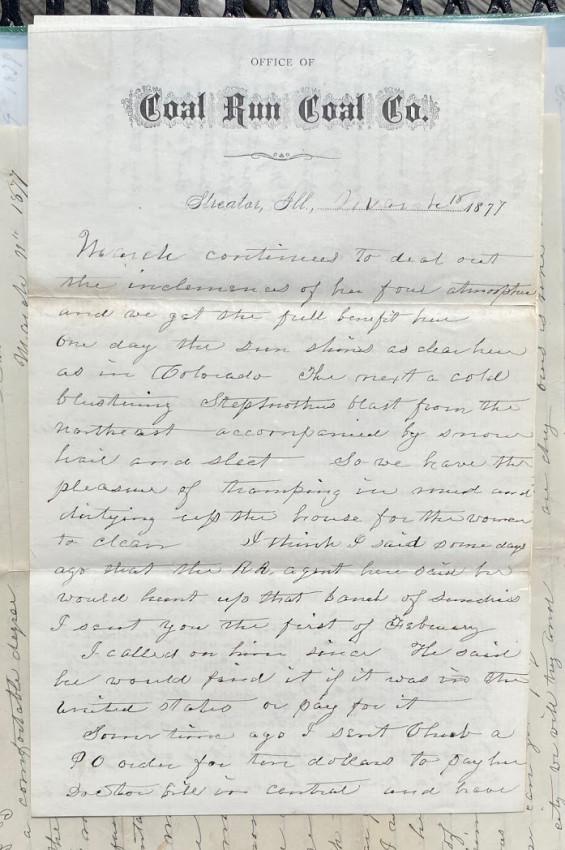 OFFICE OF
Coal Run Coal Co.
Streator, Ill., March 18 1877
March continues to deal out
the inclemences of her four atmosphere
and we get the full benefit here
One day the sun shines as clear here
as in Colorado The next a cold
blustering blast from the
northeast accompanied by snow
hail and sleet So we have the
pleasure of tramping in mud and
dirtying up the house for the women
to clean I think I said some days
ago that the RR. agent here said he
would hunt up that of sundries
I sent you the first of February
I called on him since He said
he would find it if it was in the
united states or pay for it
Some time ago I sent a
P O order for ten dollars to pay her
Doctor bill in central and have
March 11th 1877
a comfortable degree